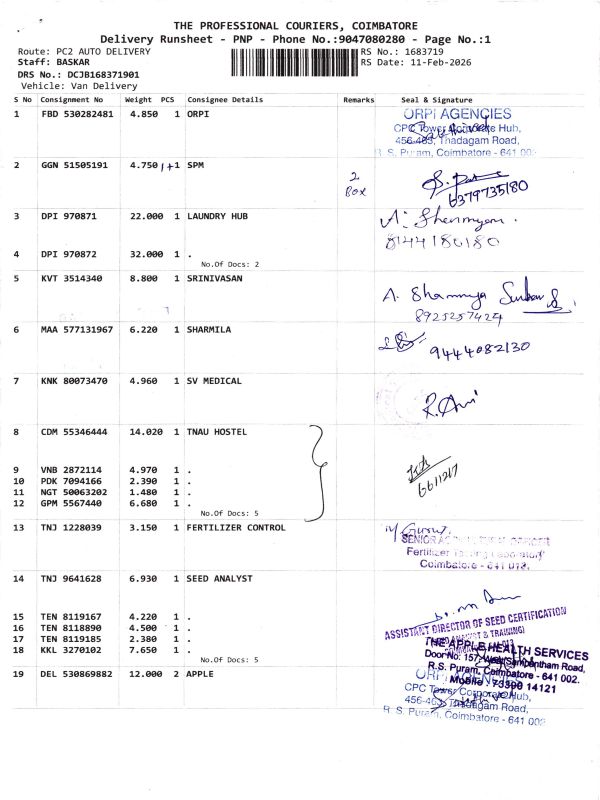 THE PROFESSIONAL COURIERS, COIMBATORE
Delivery Runsheet - PNP - Phone No.:9047080280 - Page No.:1
Route: PC2 AUTO DELIVERY
RS No.: 1683719
Staff: BASKAR
RS Date: 11-Feb-2026
DRS No.: DCJB168371901
Vehicle: Van Delivery
S No Consignment No Weight PCS Consignee Details Remarks Seal & Signature
1 FBD 530282481 4.850 1 ORPI
ORPI AGENCIES
CPC Tower Corporate Hub,
456-463, Thadagam Road,
R. S. Puram, Coimbatore - 641 002
2 GGN 51505191 4.750 1+1 SPM
2
BOX
6379735180
3 DPI 970871 22.000 1 LAUNDRY HUB
8144180180
4 DPI 970872 32.000 1 .
No.Of Docs: 2
5 KVT 3514340 8.800 1 SRINIVASAN
8925257424
6 MAA 577131967 6.220 1 SHARMILA
9444082130
7 KNK 80073470 4.960 1 SV MEDICAL
8 CDM 55346444 14.020 1 TNAU HOSTEL
9 VNB 2872114 4.970 1 .
10 PDK 7094166 2.390 1 .
11 NGT 50063202 1.480 1 .
12 GPM 5567440 6.680 1 .
No.Of Docs: 5
6611267
13 TNJ 1228039 3.150 1 FERTILIZER CONTROL
Fertilizer Testing Laboratory
Coimbatore - 641 013.
14 TNJ 9641628 6.930 1 SEED ANALYST
15 TEN 8119167 4.220 1 .
16 TEN 8118890 4.500 1 .
17 TEN 8119185 2.380 1 .
18 KKL 3270102 7.650 1 .
No.Of Docs: 5
ASSISTANT DIRECTOR OF SEED CERTIFICATION
19 DEL 530869882 12.000 2 APPLE
THE APPLE HEALTH SERVICES
Door No: 157, West Sambantham Road,
R.S. Puram, Coimbatore - 641 002.
Mobile : 73390 14121
ORPI AGENCIES
CPC Tower Corporate Hub,
456-463, Thadagam Road,
R. S. Puram, Coimbatore - 641 002